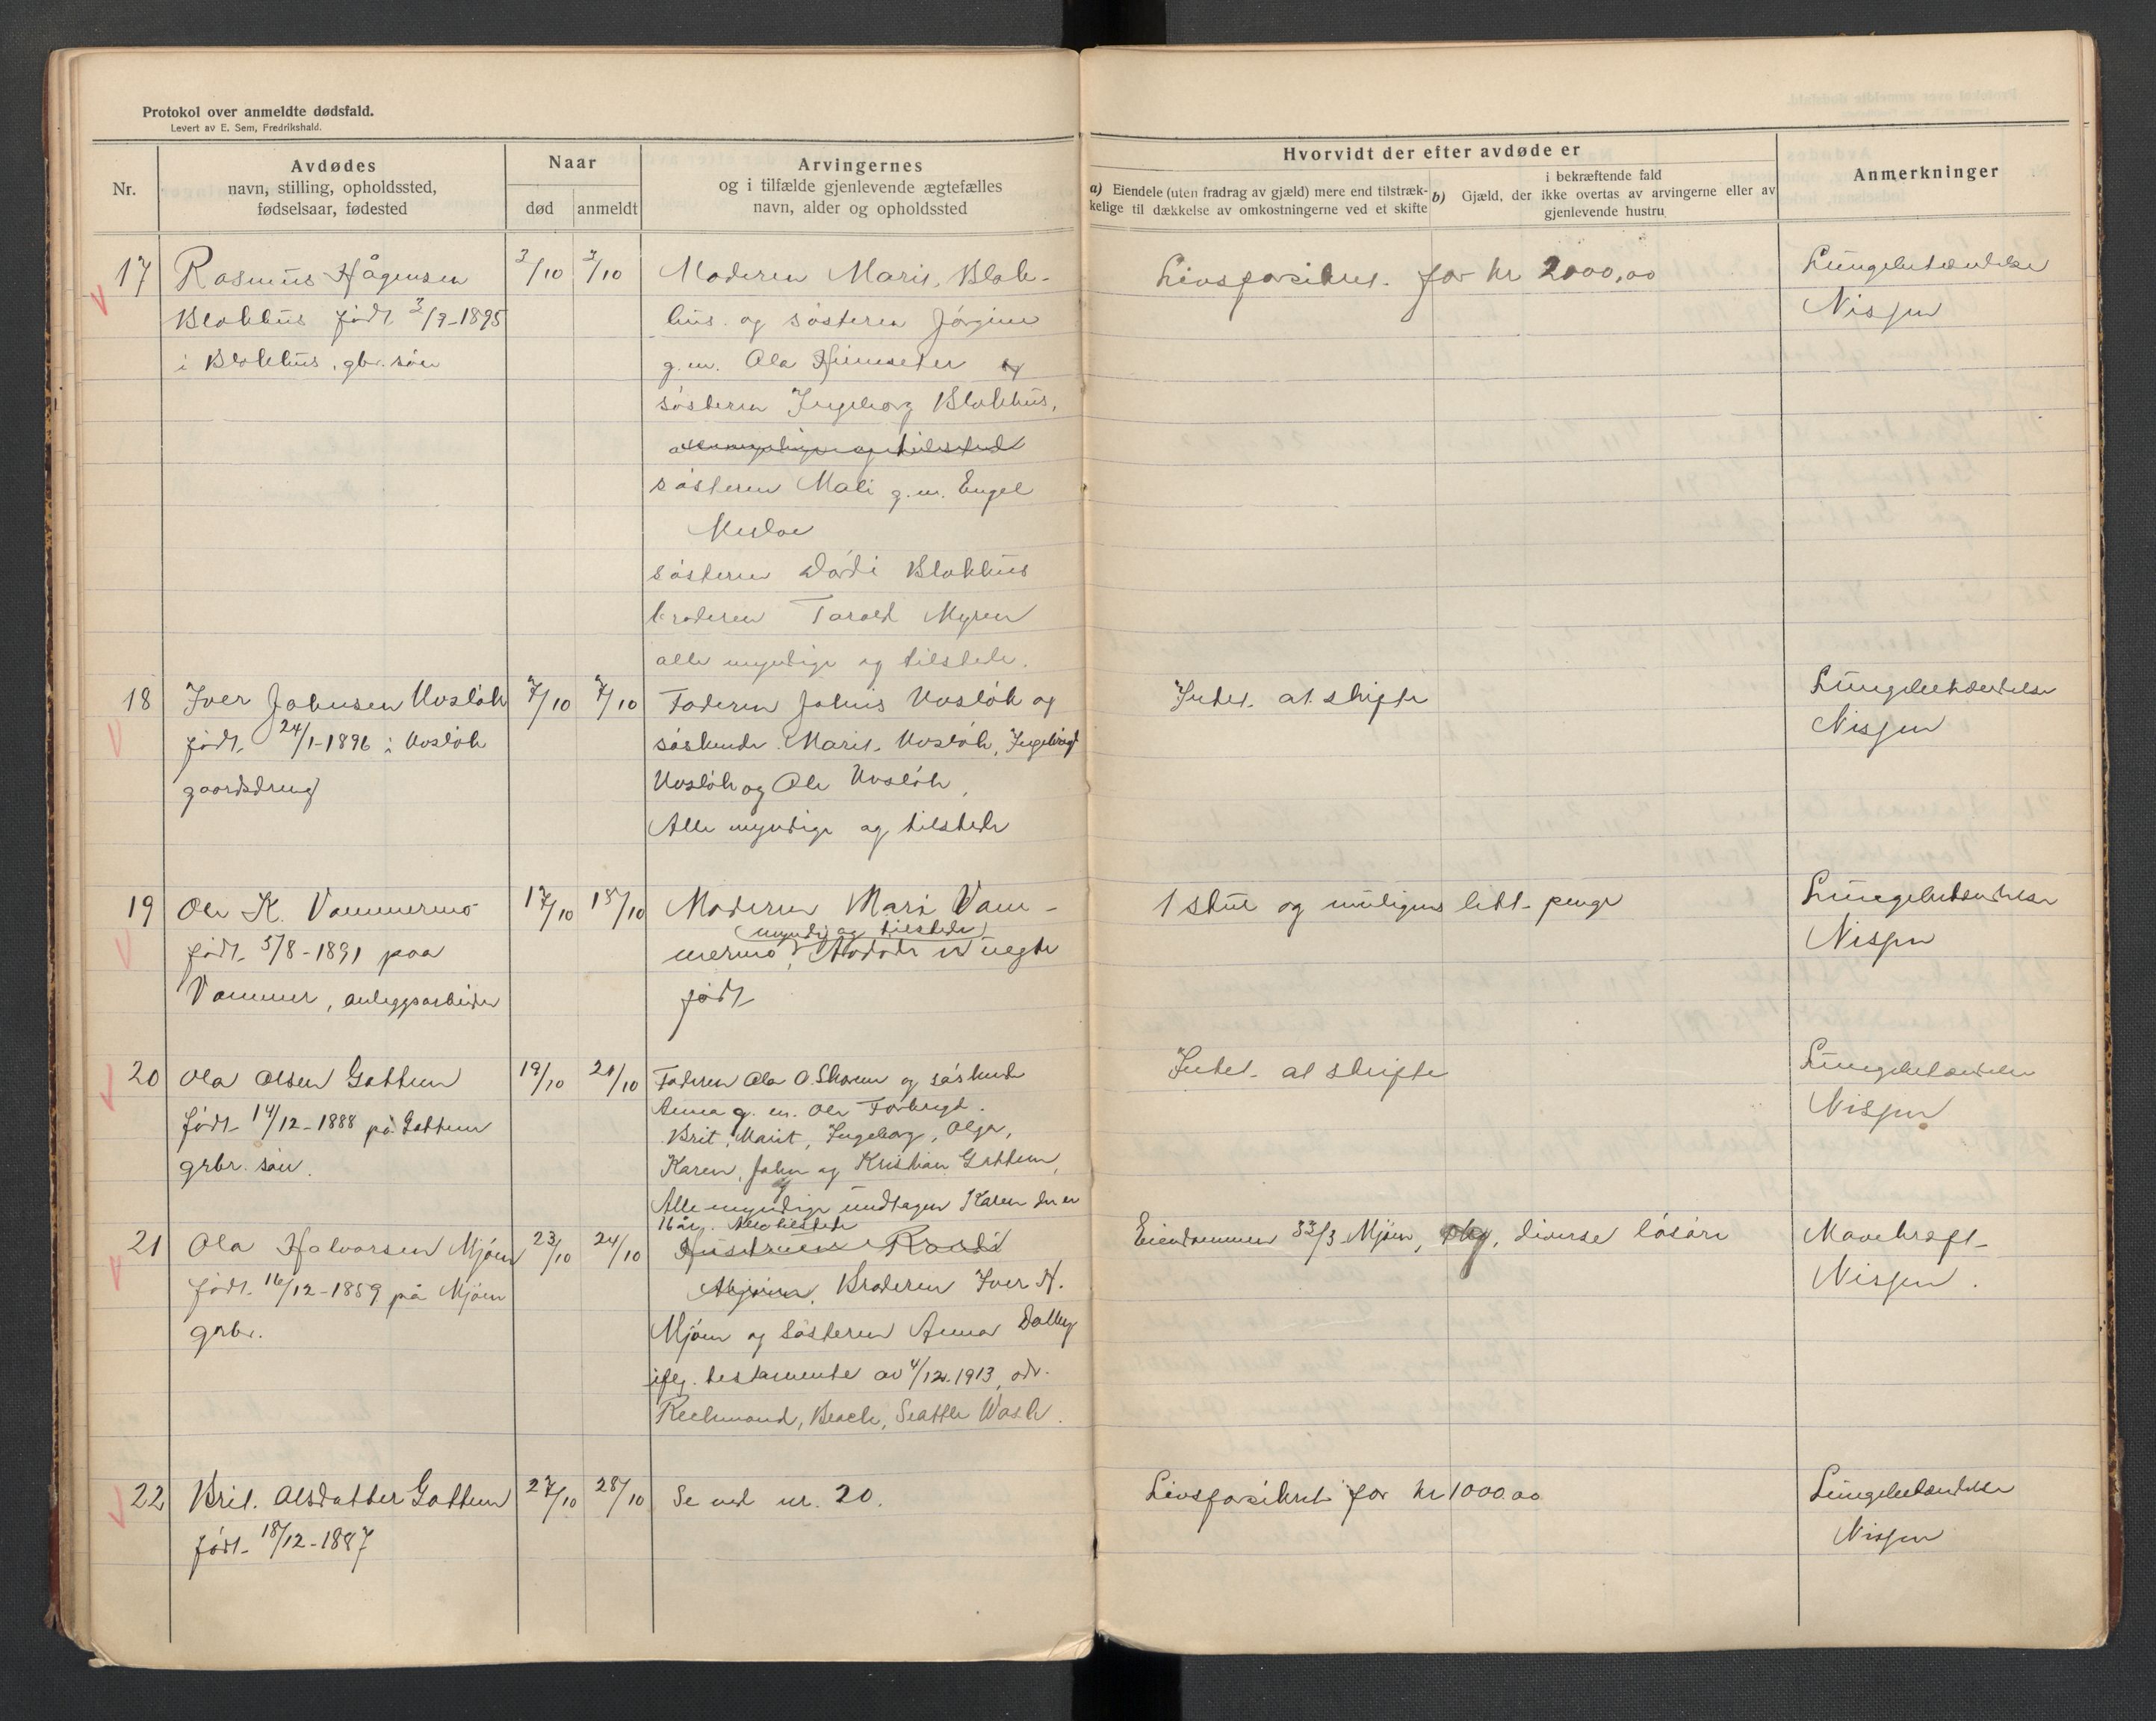 Protokol over anmeldte dødsfald.
Levert av E. Sem, Fredrikshald.
Nr.
Avdødes
navn, stilling, opholdssted,
fødselsaar, fødested
Naar
død
anmeldt
Arvingernes
og i tilfælde gjenlevende ægtefælles
navn, alder og opholdssted
Hvorvidt der efter avdøde er
a) Eiendele (uten fradrag av gjæld) mere end tilstræk-
kelige til dækkelse av omkostningerne ved et skifte
i bekræftende fald
b) Gjæld, der ikke overtas av arvingerne eller av
gjenlevende hustru
Anmerkninger
17
Rasmus Hågensen
Blokhus født 3/9-1895
i Blokhus, gbr. søn
3/10
3/10
Moderen Marit Blok-
hus og søsteren Jørgine
g.m. Ola Hinnseter og
søsteren Ingeborg Blokhus,
alle myndige og tilstede
søsteren Mali g.m. Engel
Mesloe
søsteren Dordi Blokhus
broderen Tarald Myren
alle myndige og tilstede.
Livsforsikret for kr 2000,00
Lungebetændelse
Nisjen
18
Iver Johnsen Uvsløk
født 24/1-1896 i Uvsløk
gaardsdreng
7/10
7/10
Faderen Johns Uvsløk og
søskende Marit Uvsløk, Ingebrigt
Uvsløk og Ole Uvsløk,
Alle myndige og tilstede
Intet at skifte
Lungebetændelse
Nisjen
19
Ole K. Vammermo
født 5/8-1891 paa
Vammer, anleggsarbeider
17/10
18/10
Moderen Mari Vam-
(myndig og tilstede)
mermo, Avdøde er uegte
født
1 stue og muligens litt penge
Lungebetændelse
Nisjen
20
Ola Olsen Gottem
født 14/12-1888 på Gottem
grbr. søn.
19/10
21/10
Faderen Ola O. Skorem og søskende
Anna g.m. Ole Forbregd.
Brit, Marit, Ingeborg, Olga,
Karen, John og Kristian Gottem,
Alle myndige undtagen Karen der er
16 år. Alle tilstede
Intet at skifte
Lungebetændelse
Nisjen
21
Ola Halvorsen Mjøen
født 16/12-1859 på Mjøen
grbr.
23/10
24/10
Hustruen Randi
Mjøen, Broderen Iver H.
Mjøen og Søsteren Anna Dalby
iflg. testamente av 4/12.1913, adr.
Richmond, Beach, Seattle Wash.
Eiendommen 33/3 Mjøen, og, diverse løsøre
Mavekræft
Nisjen.
22
Brit Olsdatter Gottem
født 18/12-1887
27/10
28/10
Se ved nr. 20.
Livsforsikret for kr 1000.00
Lungebetændelse
Nisjen